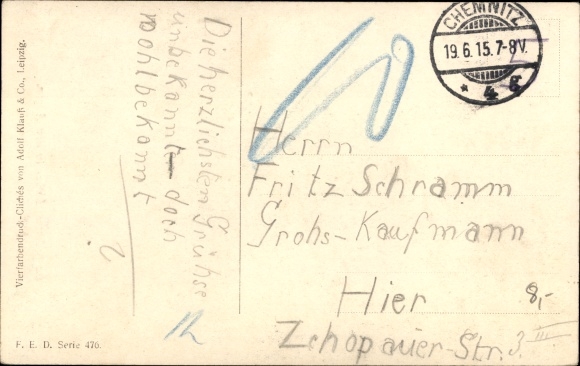 Die herzlichsten Grühse
unbekannt doch
wohlbekannt
CHEMNITZ
19.6.15.7-8V.
* 4 g
Herrn
Fritz Schramm
Grohs-Kaufmann
Hier
8,-
Zchopauer-Str. 3 III
Vierfarbendruck-Clichés von Adolf Klauß & Co., Leipzig.
F. E. D. Serie 476.